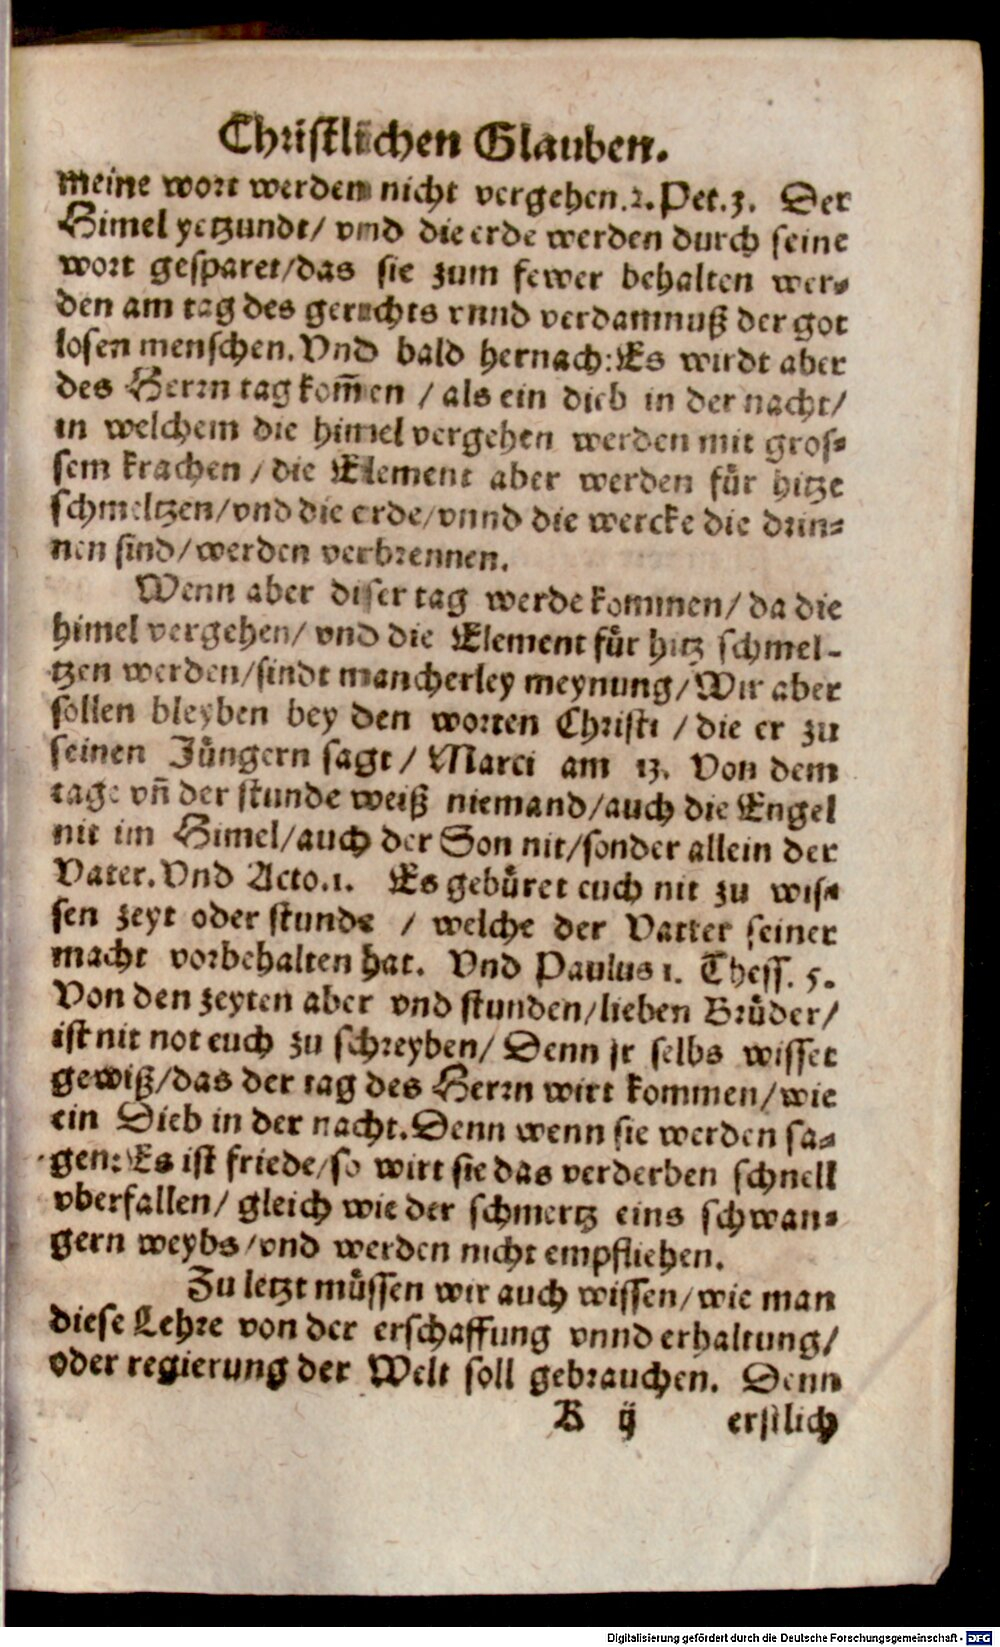 Christlichen Glauben.
meine wort werden nicht vergehen. 2. Pet. 3. Der
Himel yetzundt/ vnd die erde werden durch seine
wort gesparet/das sie zum fewer behalten wer-
den am tag des gerichts vnnd verdamnuß der got
losen menschen. Vnd bald hernach: Es wirdt aber
des Herrn tag kom̃en / als ein dieb in der nacht/
in welchem die himel vergehen werden mit gros-
sem krachen / die Element aber werden fůr hitze
schmeltzen/vnd die erde/vnnd die wercke die drin-
nen sind/werden verbrennen.
Wenn aber diser tag werde kommen/ da die
himel vergehen/ vnd die Element fůr hitz schmel-
tzen werden/sindt mancherley meynung/Wir aber
sollen bleyben bey den worten Christi / die er zu
seinen Jůngern sagt / Marci am 13. Von dem
tage vñ der stunde weiß niemand/auch die Engel
nit im Himel/auch der Son nit/sonder allein der
Vater. Vnd Acto. 1. Es gebůret euch nit zu wis-
sen zeyt oder stunde / welche der Vatter seiner
macht vorbehalten hat. Vnd Paulus 1. Thess. 5.
Von den zeyten aber vnd stunden/lieben Brůder/
ist nit not euch zu schreyben/ Denn jr selbs wisset
gewiß/das der tag des Herrn wirt kommen/wie
ein Dieb in der nacht. Denn wenn sie werden sa-
gen: Es ist friede/so wirt sie das verderben schnell
vberfallen/ gleich wie der schmertz eins schwan-
gern weybs/vnd werden nicht empfliehen.
Zu letzt můssen wir auch wissen/wie man
diese Lehre von der erschaffung vnnd erhaltung/
oder regierung der Welt soll gebrauchen. Denn
B ij erstlich
Digitalisierung gefördert durch die Deutsche Forschungsgemeinschaft - DFG